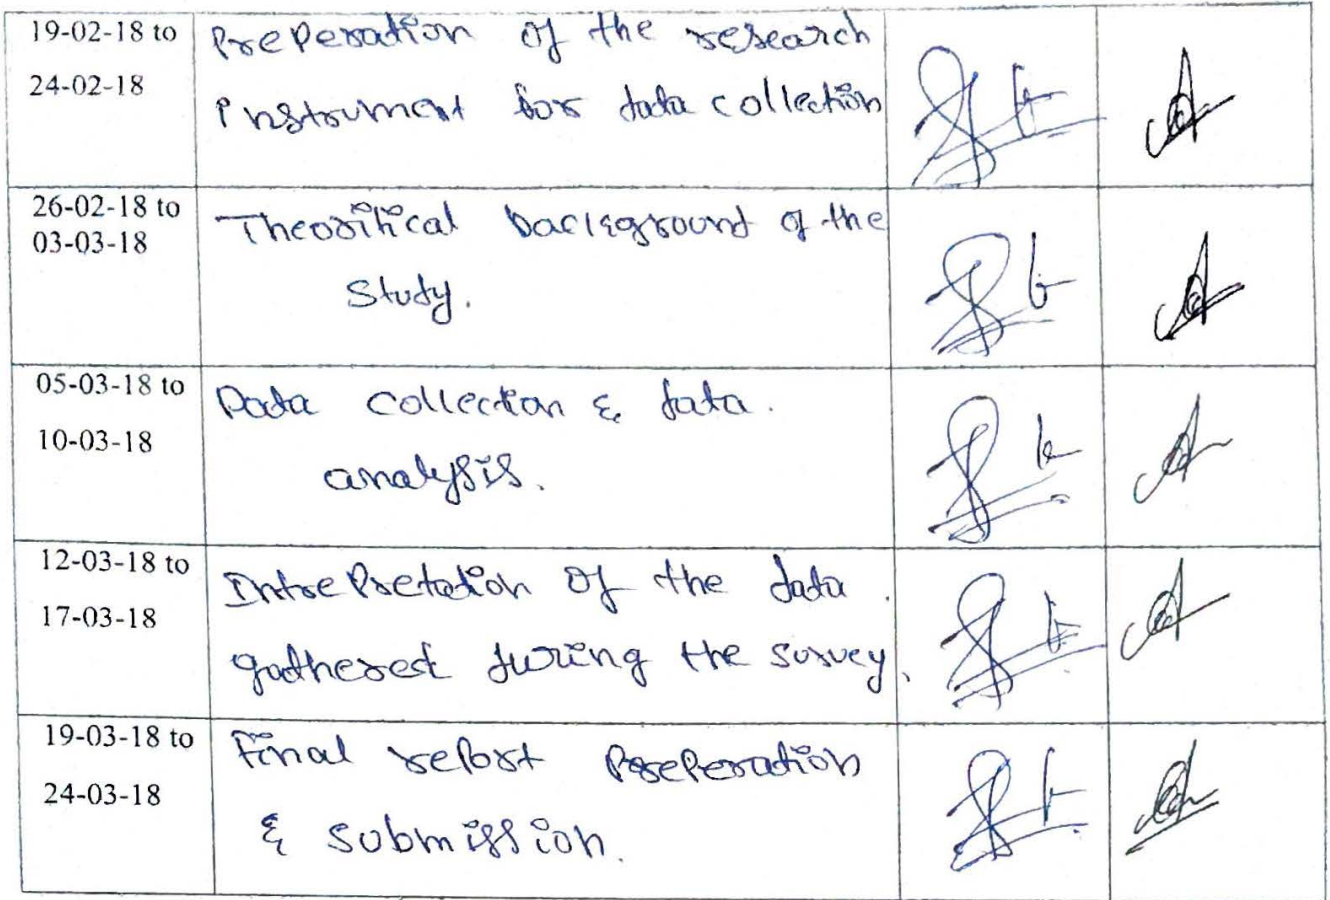 19-02-18 to
24-02-18
Preperation of the research
instrument for data collection
26-02-18 to
03-03-18
Theoritical background of the
Study.
05-03-18 to
10-03-18
Data collection & data.
analysis.
12-03-18 to
17-03-18
Intrepretation of the data.
gathered during the survey.
19-03-18 to
24-03-18
Final report preperation
& submission.